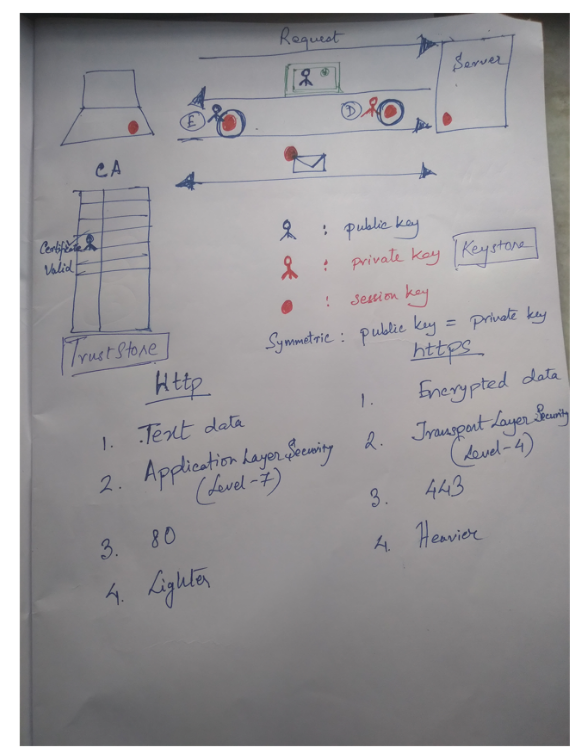 Request
Server
E
D
CA
Certificate
Valid
TrustStore
: public key
: private key
Keystore
: session key
Symmetric : public key = private key
Http
1. Text data
2. Application Layer Security
(Level-7)
3. 80
4. Lighter
https
1. Encrypted data
2. Transport Layer Security
(Level-4)
3. 443
4. Heavier